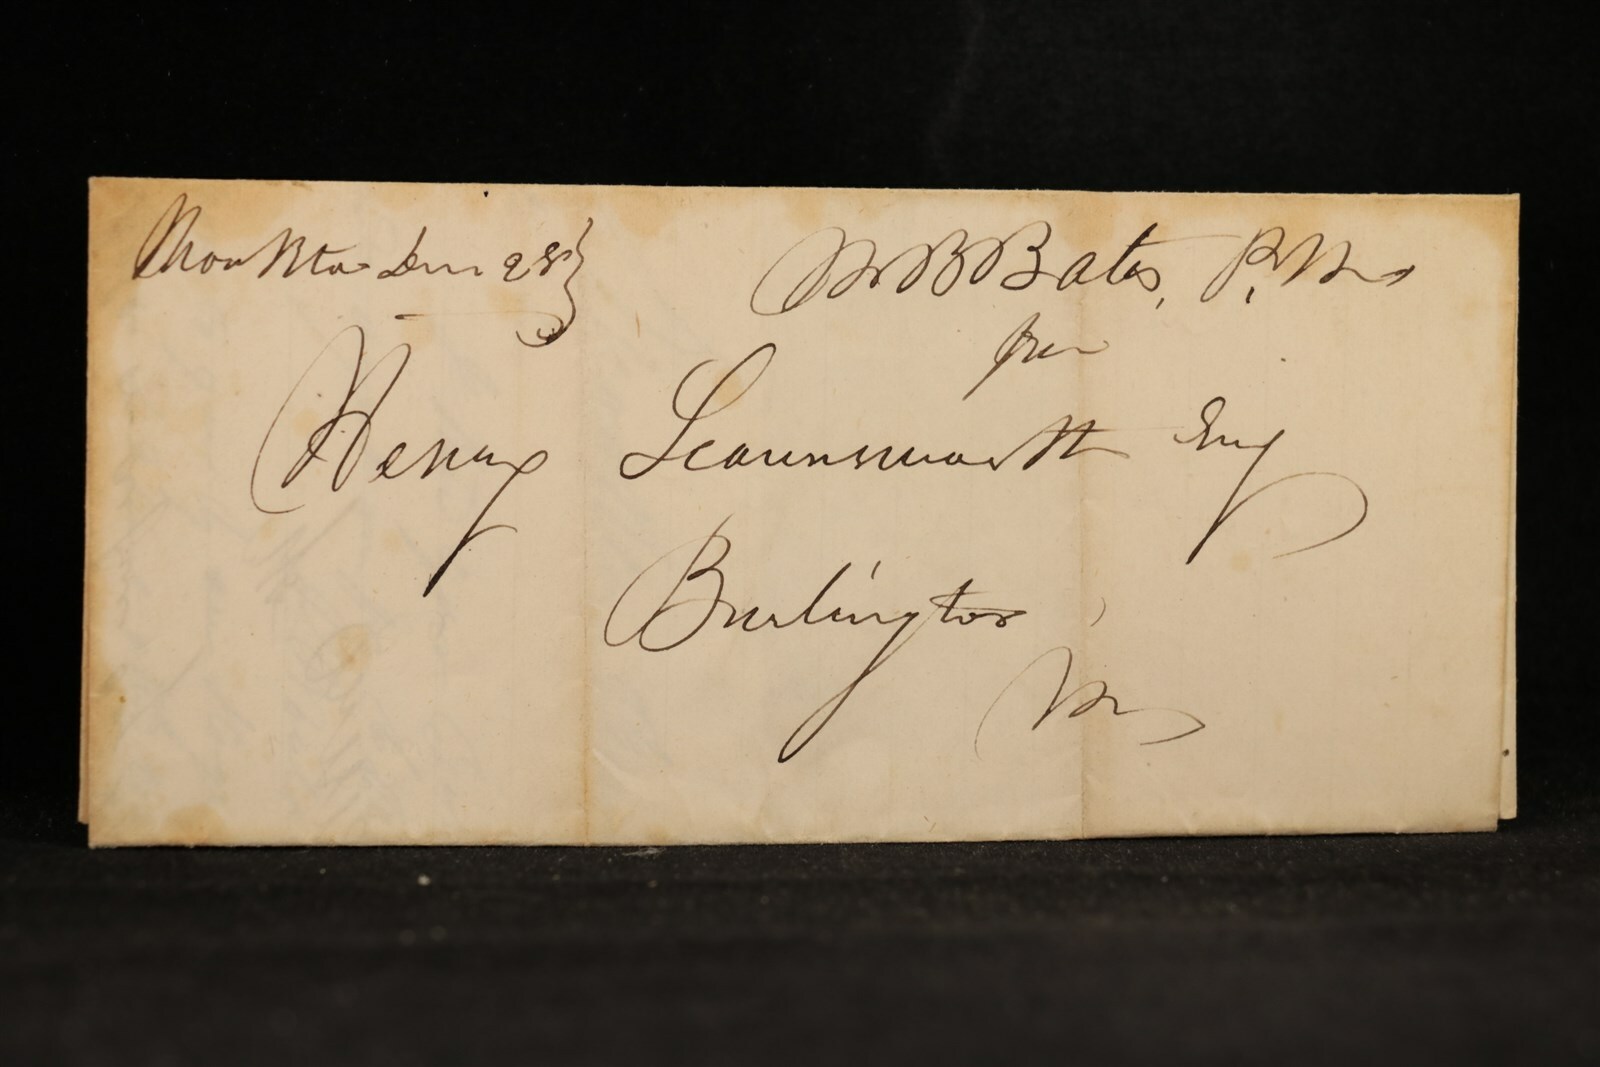 Monkton Dec 28}
B Bates, P.M.
free
Henry Leavenworth Esq
Burlington
Vt